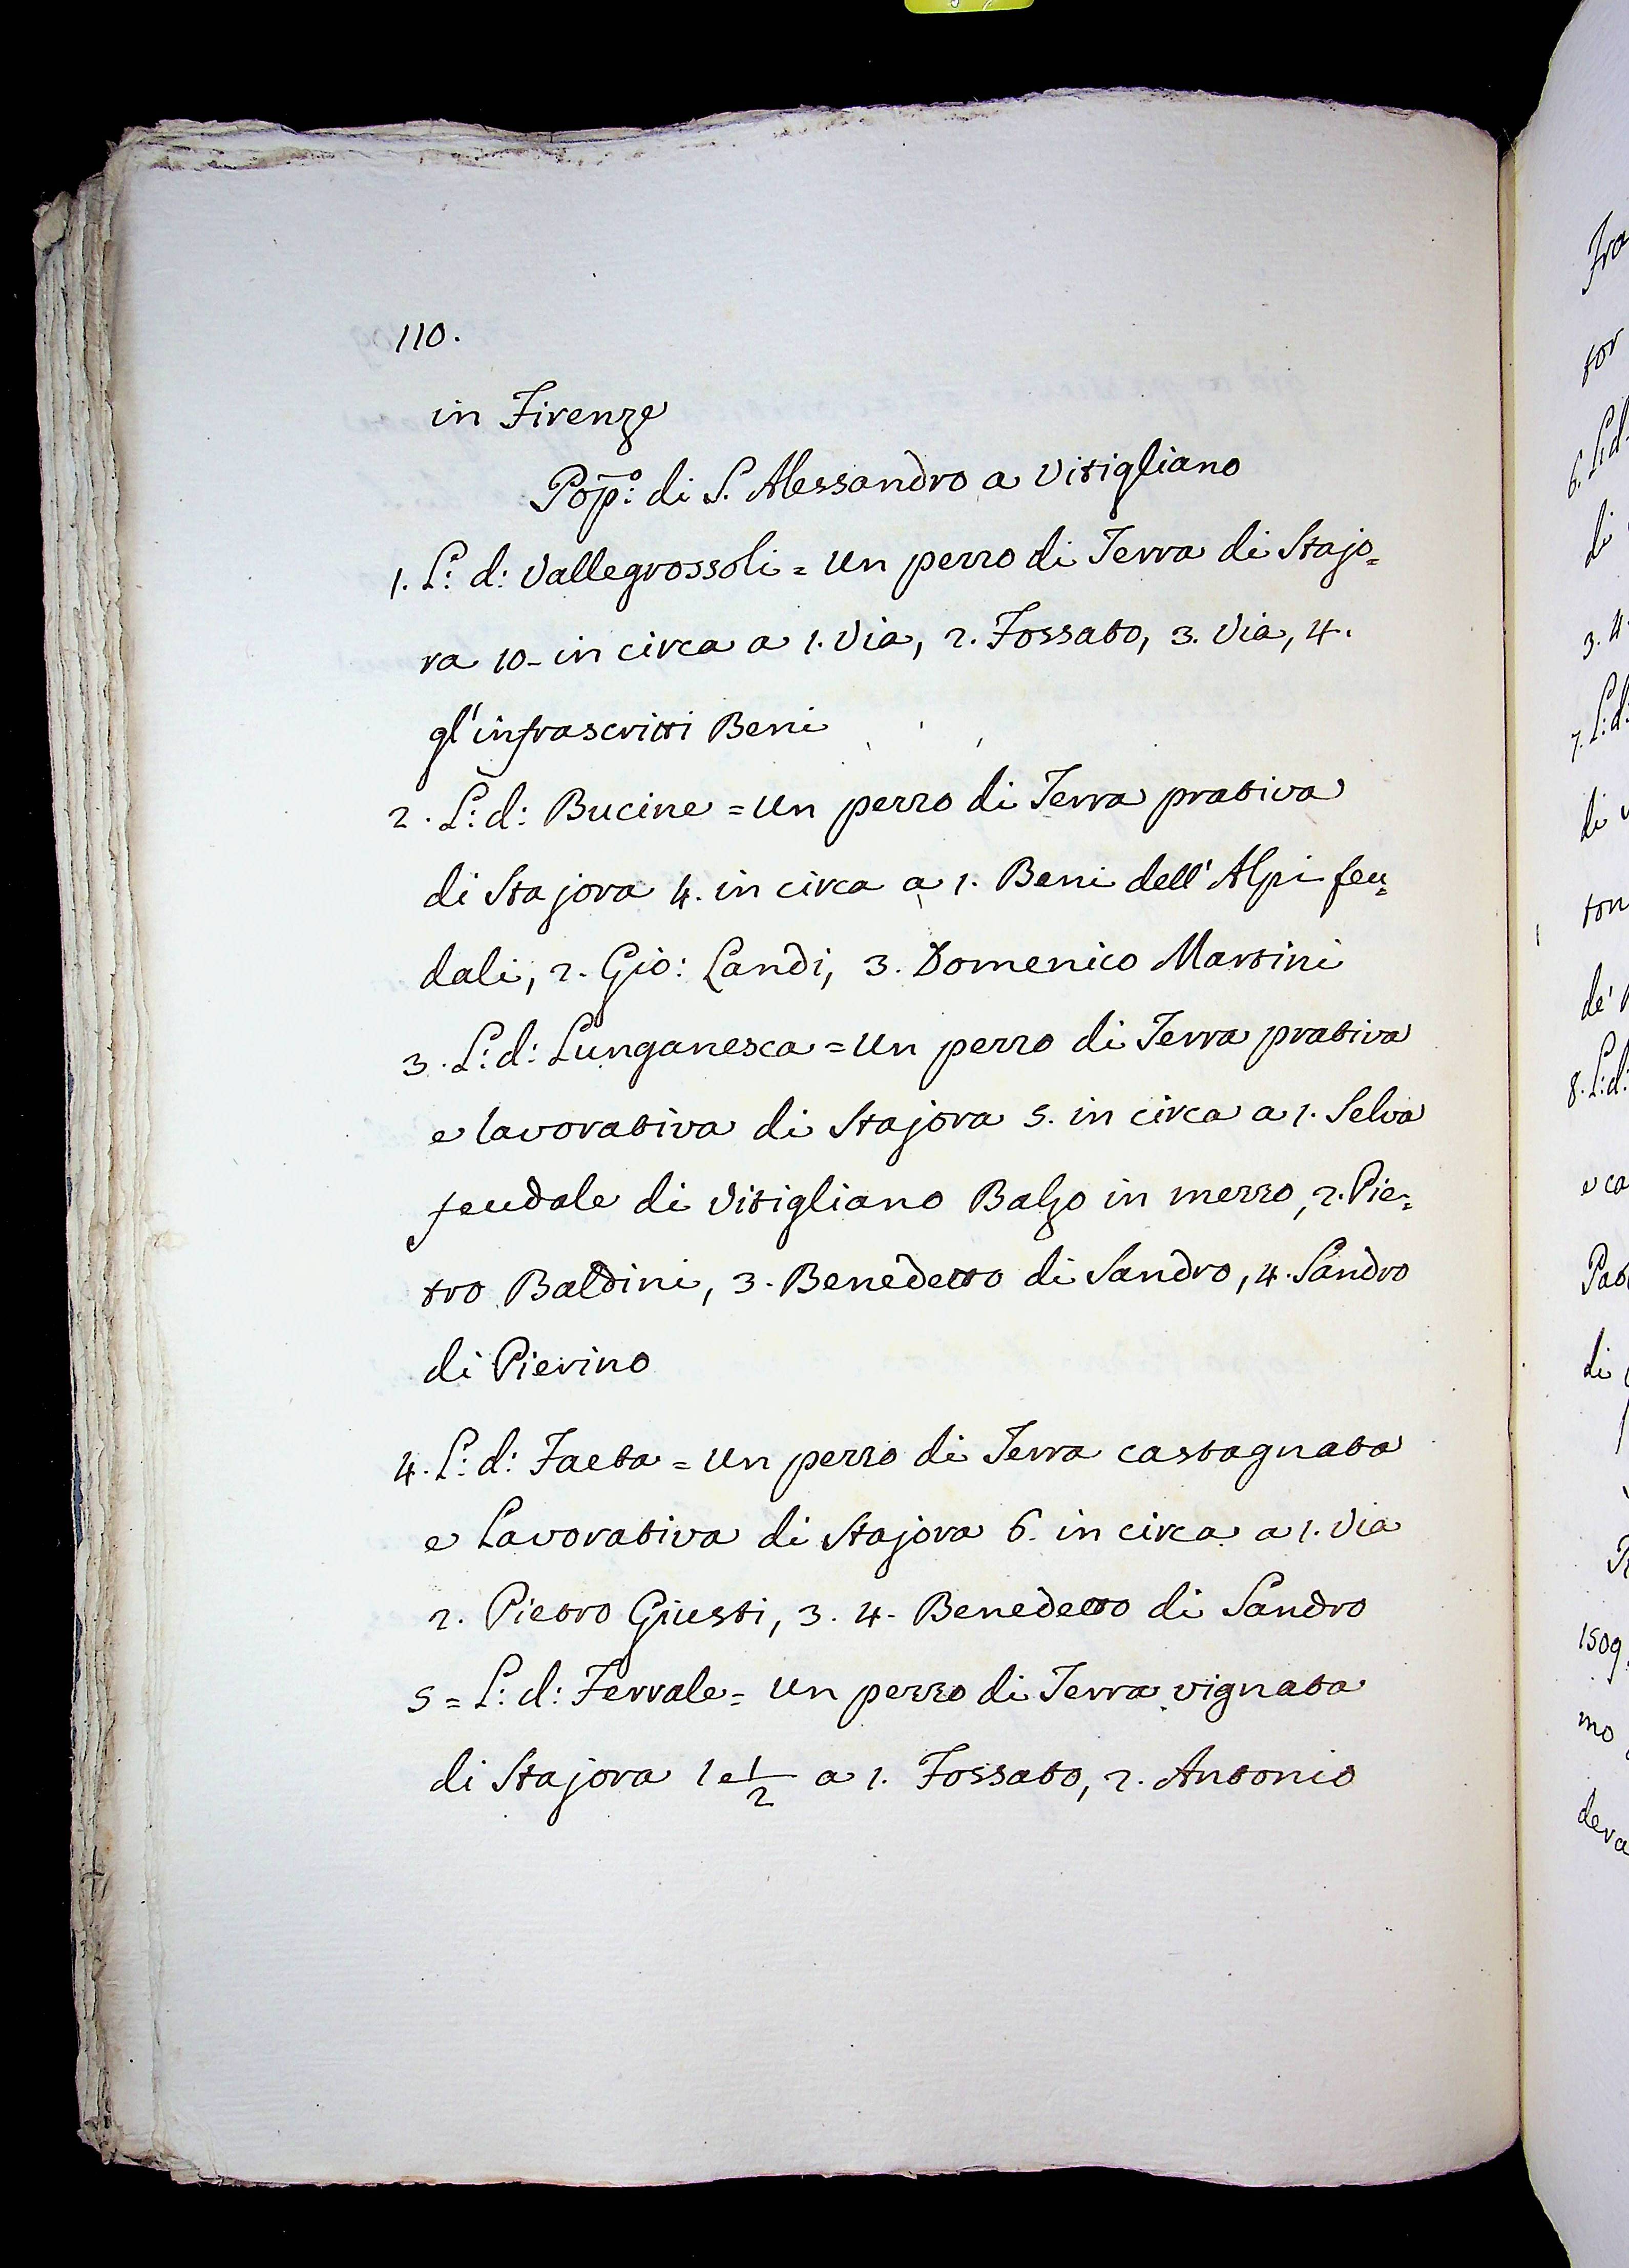 110.
in Firenze
Pop̃:º di S. Alessandro a Vitigliano
1. L: d: Vallegrossoli = Un pezzo di Terra di Stajo=
ra 10- in circa a 1. Via, 2. Fossato, 3. Via, 4.
gl'infrascritti Beni
2. L: d: Bucine = Un pezzo di Terra prativa
di Stajora 4. in circa a 1. Beni dell'Alpi feu=
dali, 2. Gio: Landi, 3. Domenico Martini
3. L: d: Lunganesca = Un pezzo di Terra prativa
e lavorativa di Stajora 5. in circa a 1. Selva
feudale di Vitigliano Balzo in mezzo, 2. Pie=
tro Baldini, 3. Benedetto di Sandro, 4. Sandro
di Pierino
4. L: d: Faeta = Un pezzo di Terra castagnata
e Lavorativa di Stajora 6. in circa a 1. Via
2. Pietro Giusti, 3. 4. Benedetto di Sandro
5 = L: d: Ferrale = Un pezzo di Terra vignata
di Stajora 1 e 1/2 a 1. Fossato, 2. Antonio